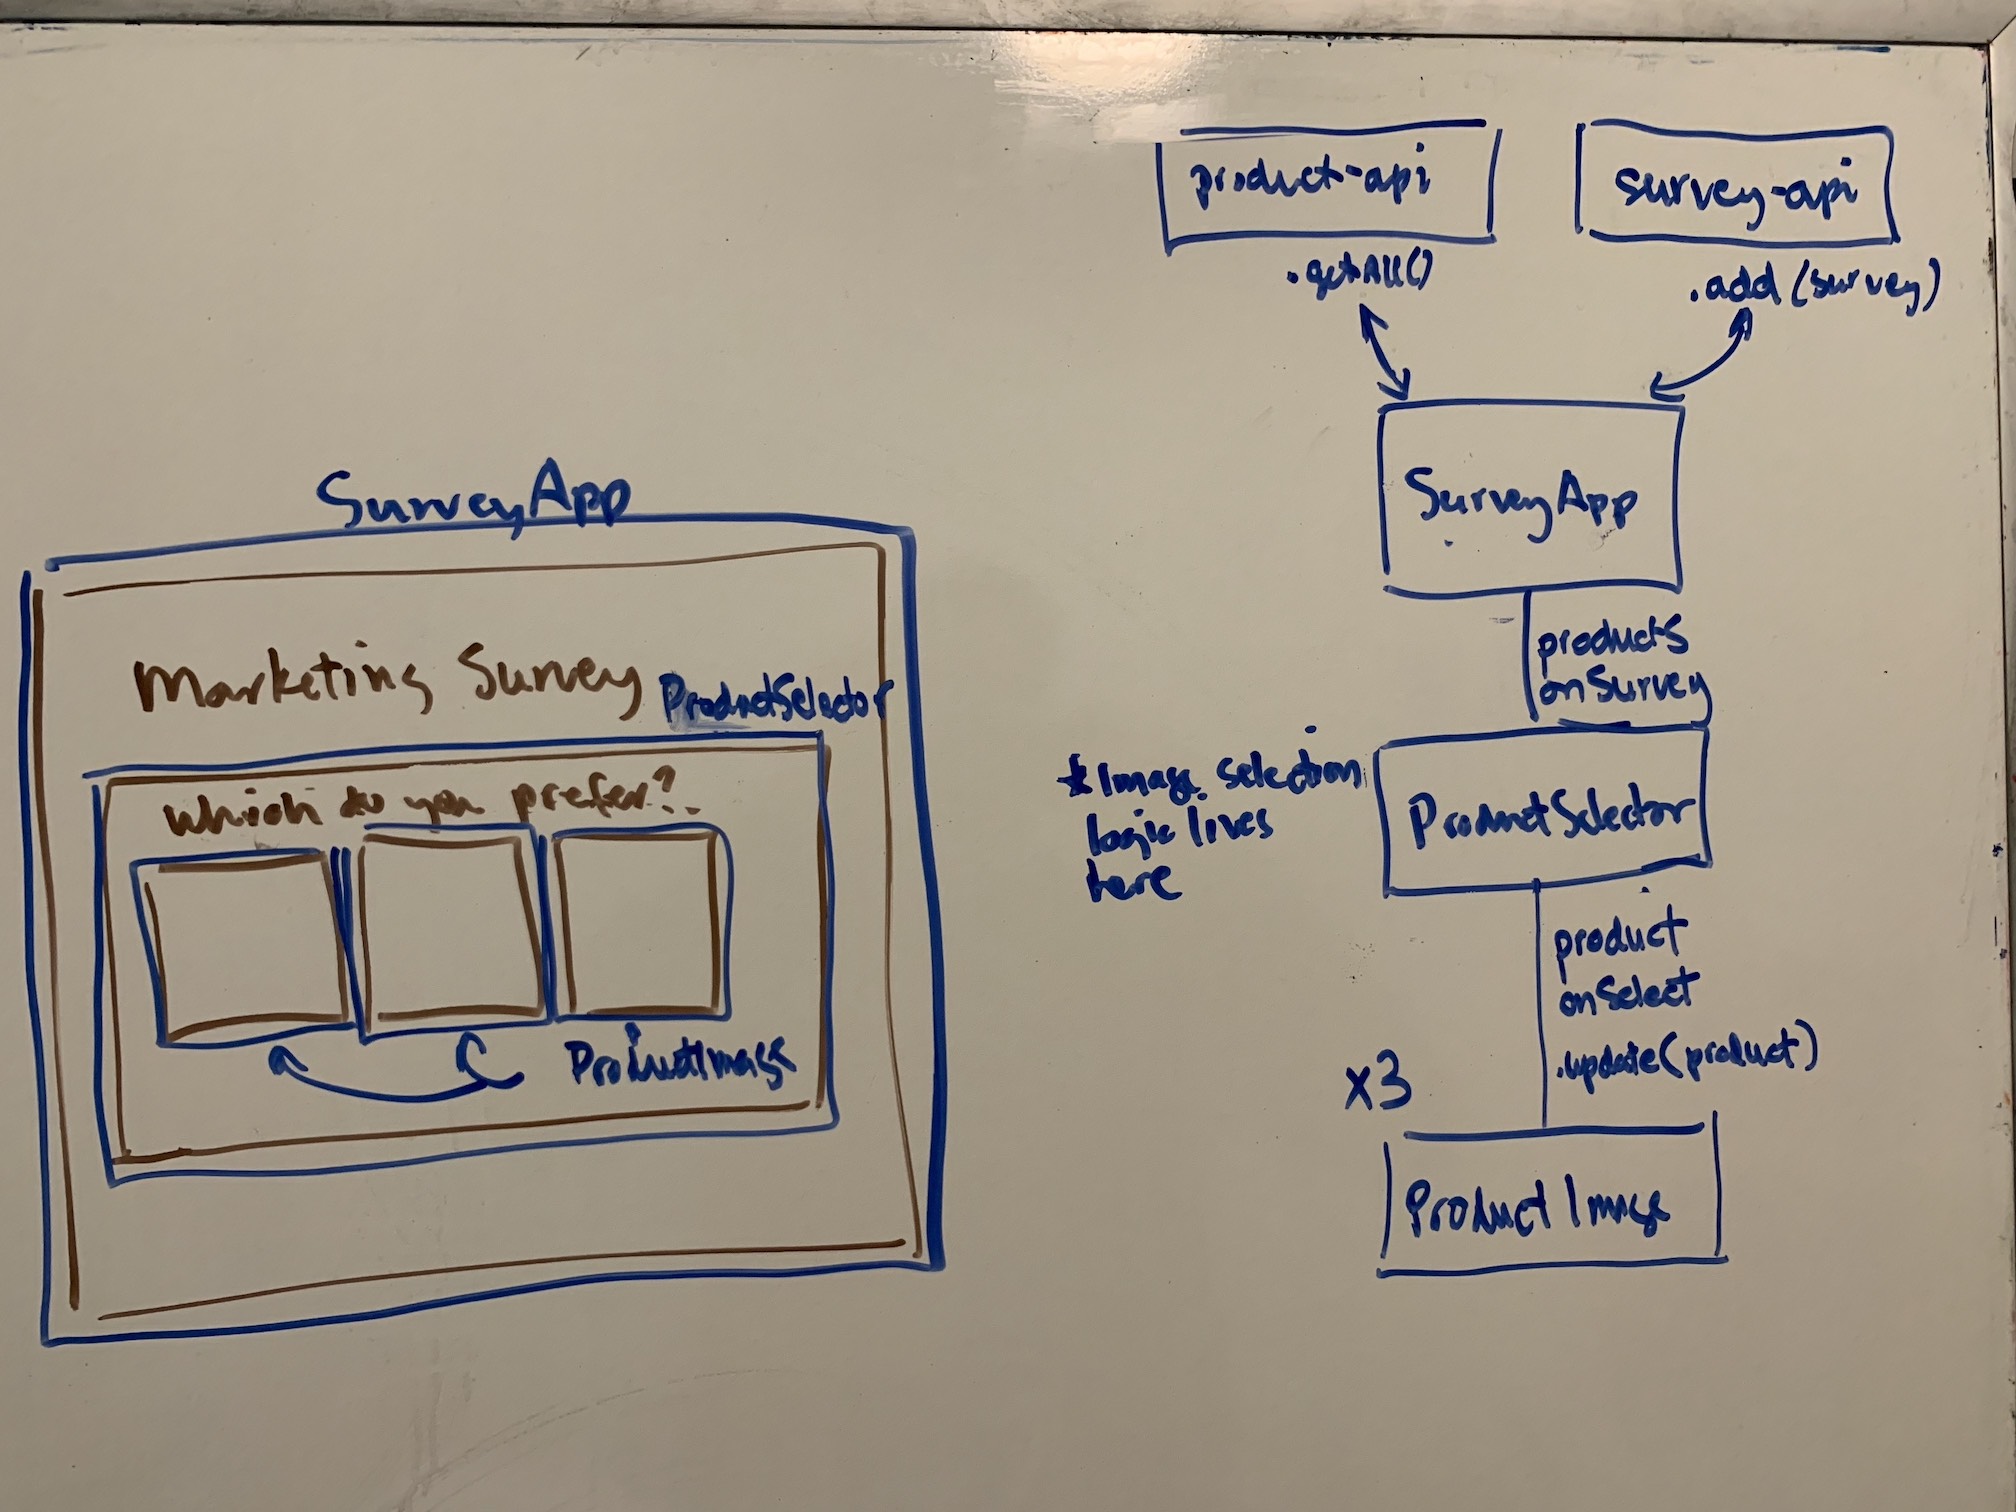 SurveyApp
Marketing Survey
ProductSelector
which do you prefer?
ProductImage
product-api
.getAll()
survey-api
.add(survey)
SurveyApp
products
onSurvey
*Image selection
logic lives
here
ProductSelector
product
onSelect
.update(product)
x3
Product Image